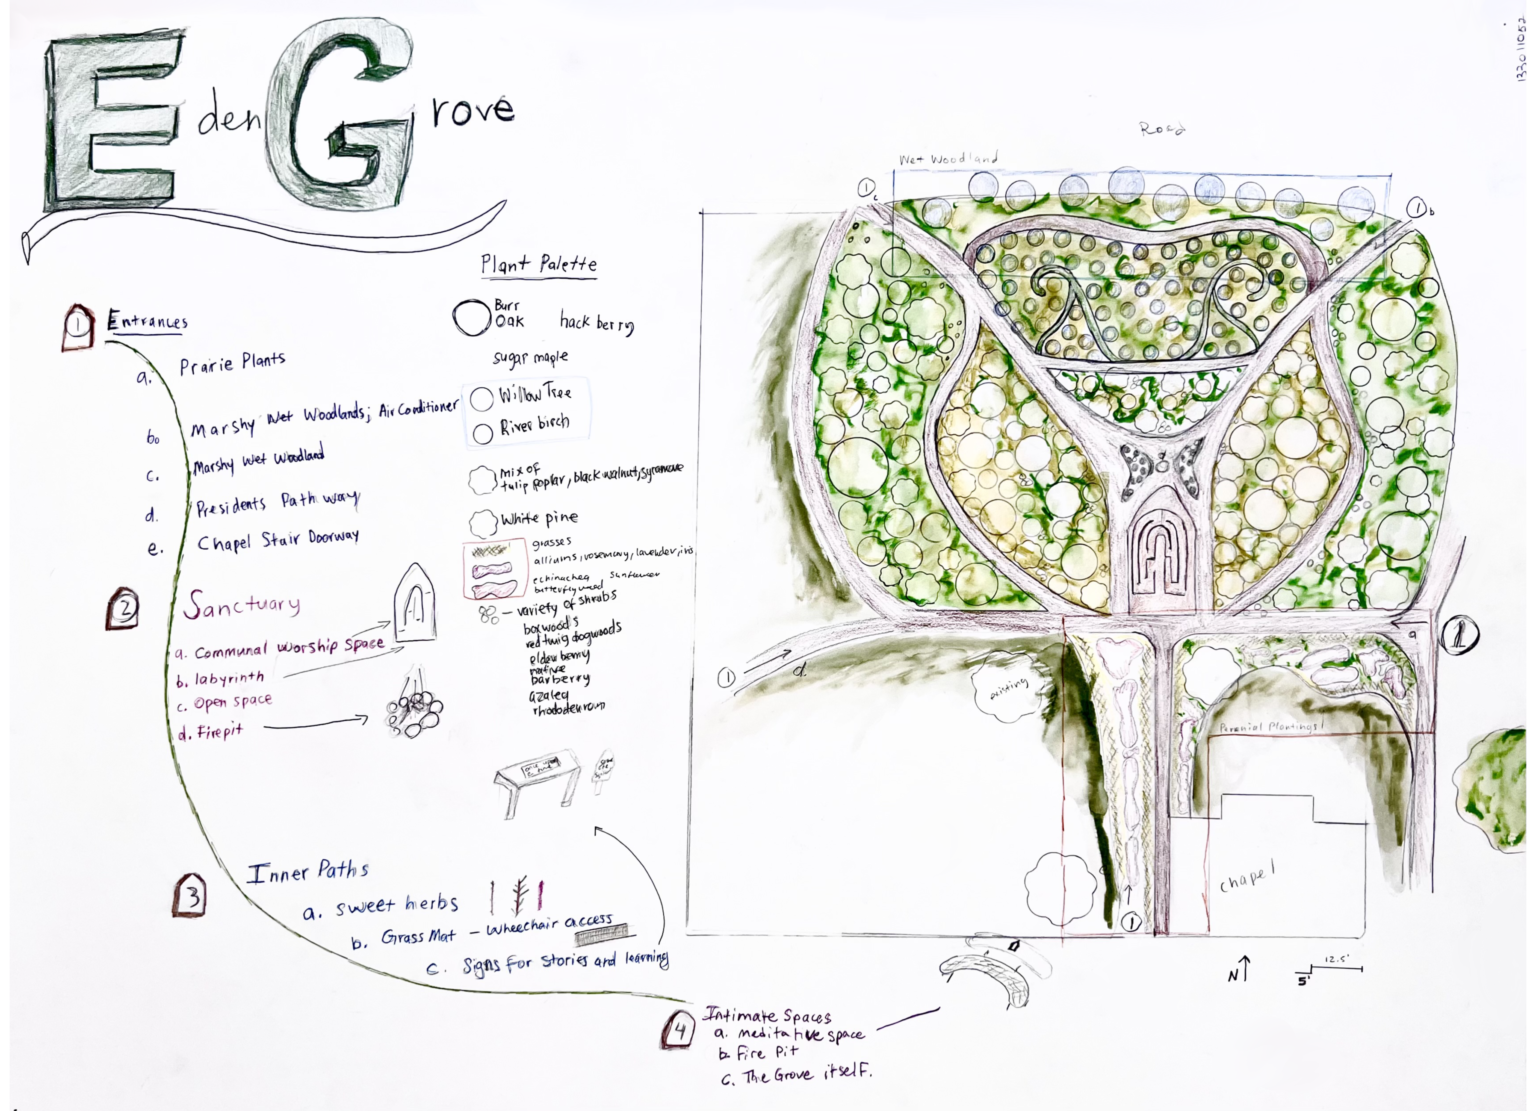 Eden Grove
133011052
Plant Palette
Burr
Oak
hack berry
sugar maple
Willow Tree
River birch
mix of
tulip poplar, black walnut, sycamore
White pine
grasses
alliums, rosemary, lavender, iris,
echinachea sunflower
butterflyweed
- variety of shrubs
boxwoods
redtwig dogwoods
elderberry
native
barberry
azalea
1 Entrances
a. Prairie Plants
b. Marshy Wet Woodlands; Air Conditioner
c. Marshy Wet Woodland
d. Presidents Path way
e. Chapel Stair Doorway
2 Sanctuary
a. Communal worship space
b. labyrinth
c. Open space
d. Firepit
3 Inner Paths
a. sweet herbs
b. Grass Mat - Wheechair access
c. Signs for Stories and learning
4 Intimate Spaces
a. meditative space
b. Fire Pit
c. The Grove itself.
Road
Wet Woodland
1 c
1 b
1
a
1
d.
existing
Perenial Plantings
chapel
1
N
5'
12.5'